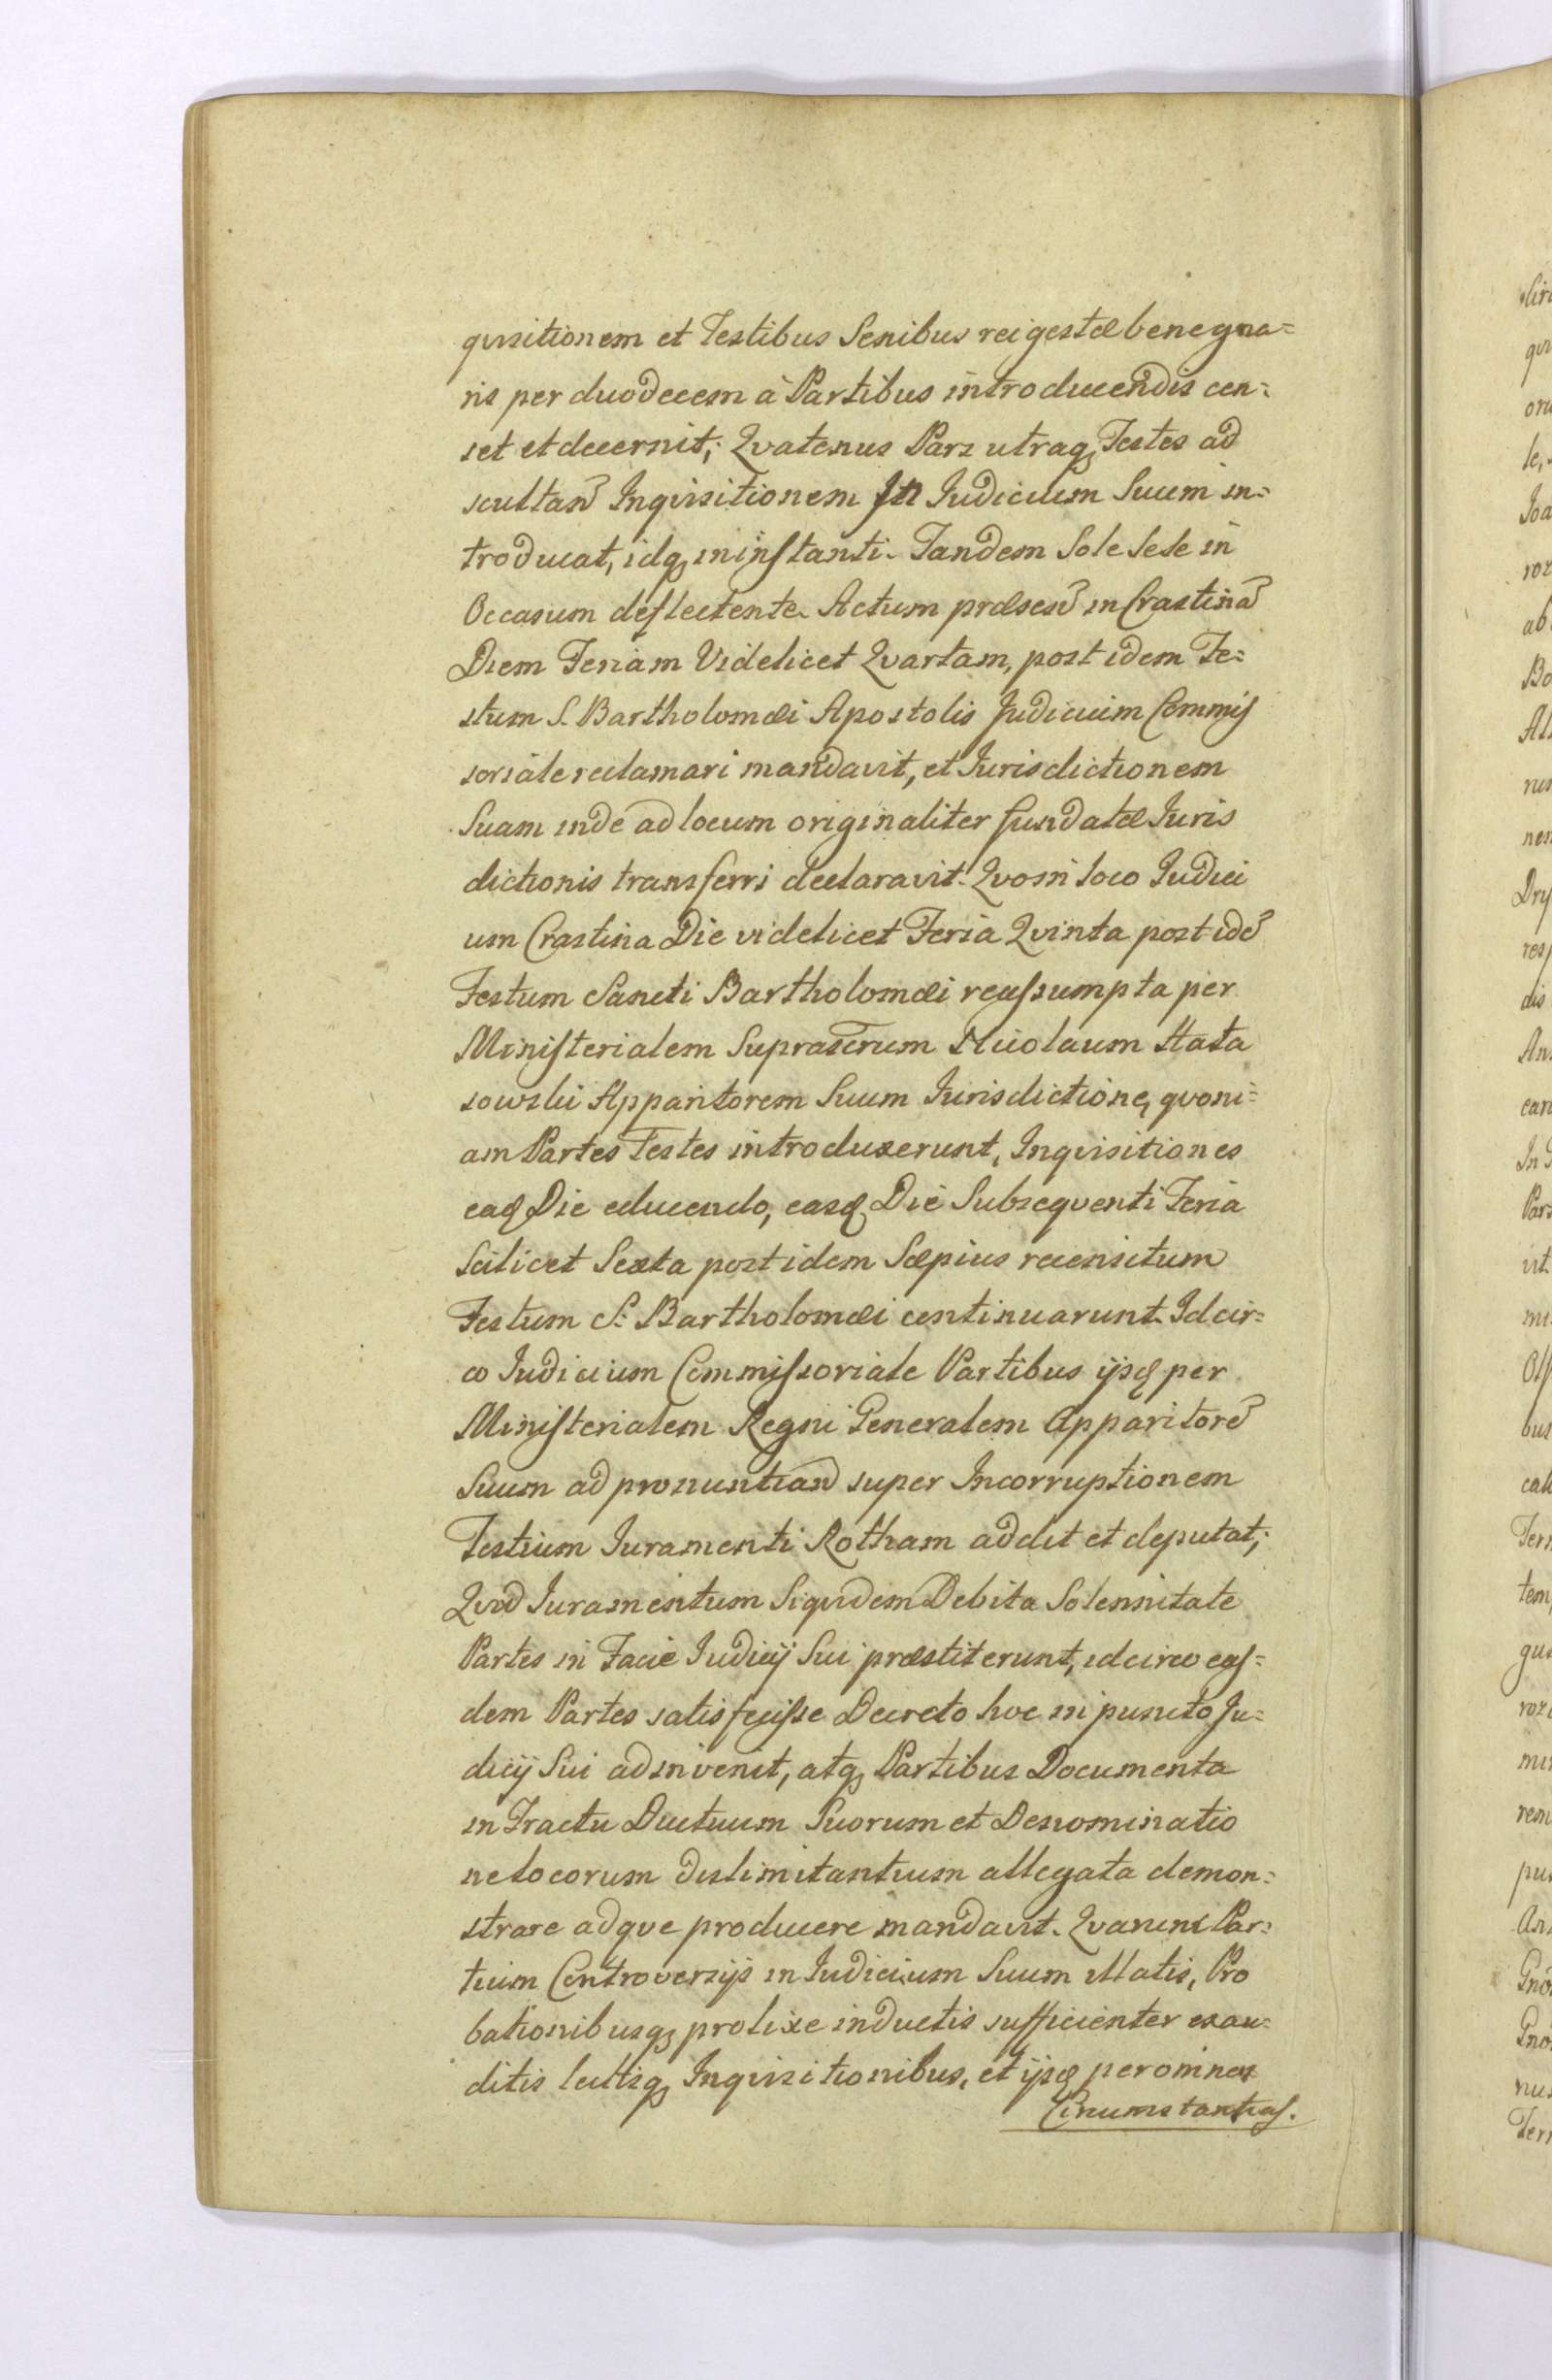 qvisitionem et Testibus Senibus rei gestæ bene gna=
ris per duodecem à Partibus introducendis cen=
set et decernit; Qvatenus Pars utraq, Testes ad
scultand Inqvisitionem In Judicium Suum in=
troducat, idq, in instanti. Tandem Sole Sese in
Occasum deflectente Actum præsens in Crastinã
Diem Feriam Videlicet Qvartam, post idem Fe=
stum S. Bartholomæi Apostolis Judicium Commis
soriale reclamari mandavit, et Jurisdictionem
Suam inde ad locum originaliter fundatæ Juris
dictionis transferri declaravit. Qvo in loco Judici
um Crastina Die videlicet Feria Qvinta post idẽ
Festum Sancti Bartholomæi reassumpta per
Ministerialem Suprascrum Nicolaum
Apparitorem Suum Jurisdictione, qvoni=
am Partes Testes introduxerunt, Inqvisitiones
eaq Die educendo, easq, Die Subseqventi Feria
Scilicet Sexta post idem Sæpius recensitum
Festum S: Bartholomæi continuarunt. Idcir=
co Judicium Commissoriale Partibus ijsq per
Ministerialem Regni Generalem Apparitorẽ
Suum ad pronuntiand super Incorruptionem
Testium Juramenti Rotham addit et deputat;
Qvod Juramentum Siqvidem Debita Solennitate
Partes in Facie Judicij Sui præstiterunt, idcirco eas=
dem Partes satisfecisse Decreto hoc in puncto Ju=
dicij Sui adinvenit, atq, Partibus Documenta
in Tractu Ductuum Suorum et Denominatio
ne locorum dislimitantium allegata demon=
strare adqve producere mandavit. Qvarum Par=
tium Controversijs in Judicium Suum illatis, Pro
bationibusq, prolixe inductis sufficienter exau=
ditis lectisq, Inqvisitionibus, et ijsq per omnes
Circumstantias.